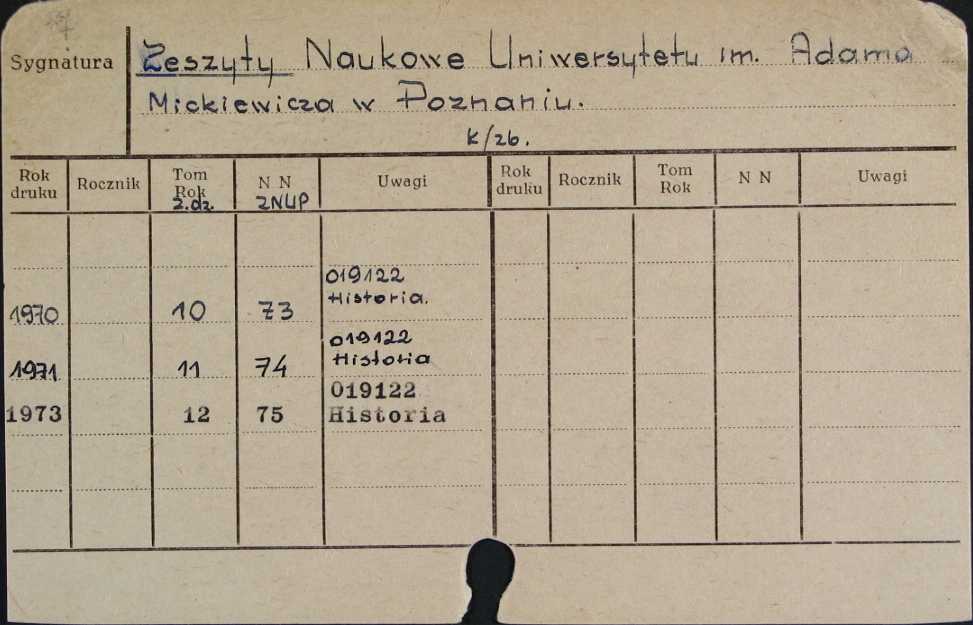 Sygnatura Zeszyty Naukowe Uniwersytetu im. Adama
Mickiewicza w Poznaniu.
K/26.
Rok druku Rocznik Tom Rok z.dz. N N ZNUP Uwagi Rok druku Rocznik Tom Rok N N Uwagi
019122
Historia.
1970 10 73
019122
Historia
1971 11 74
019122
1973 12 75 Historia